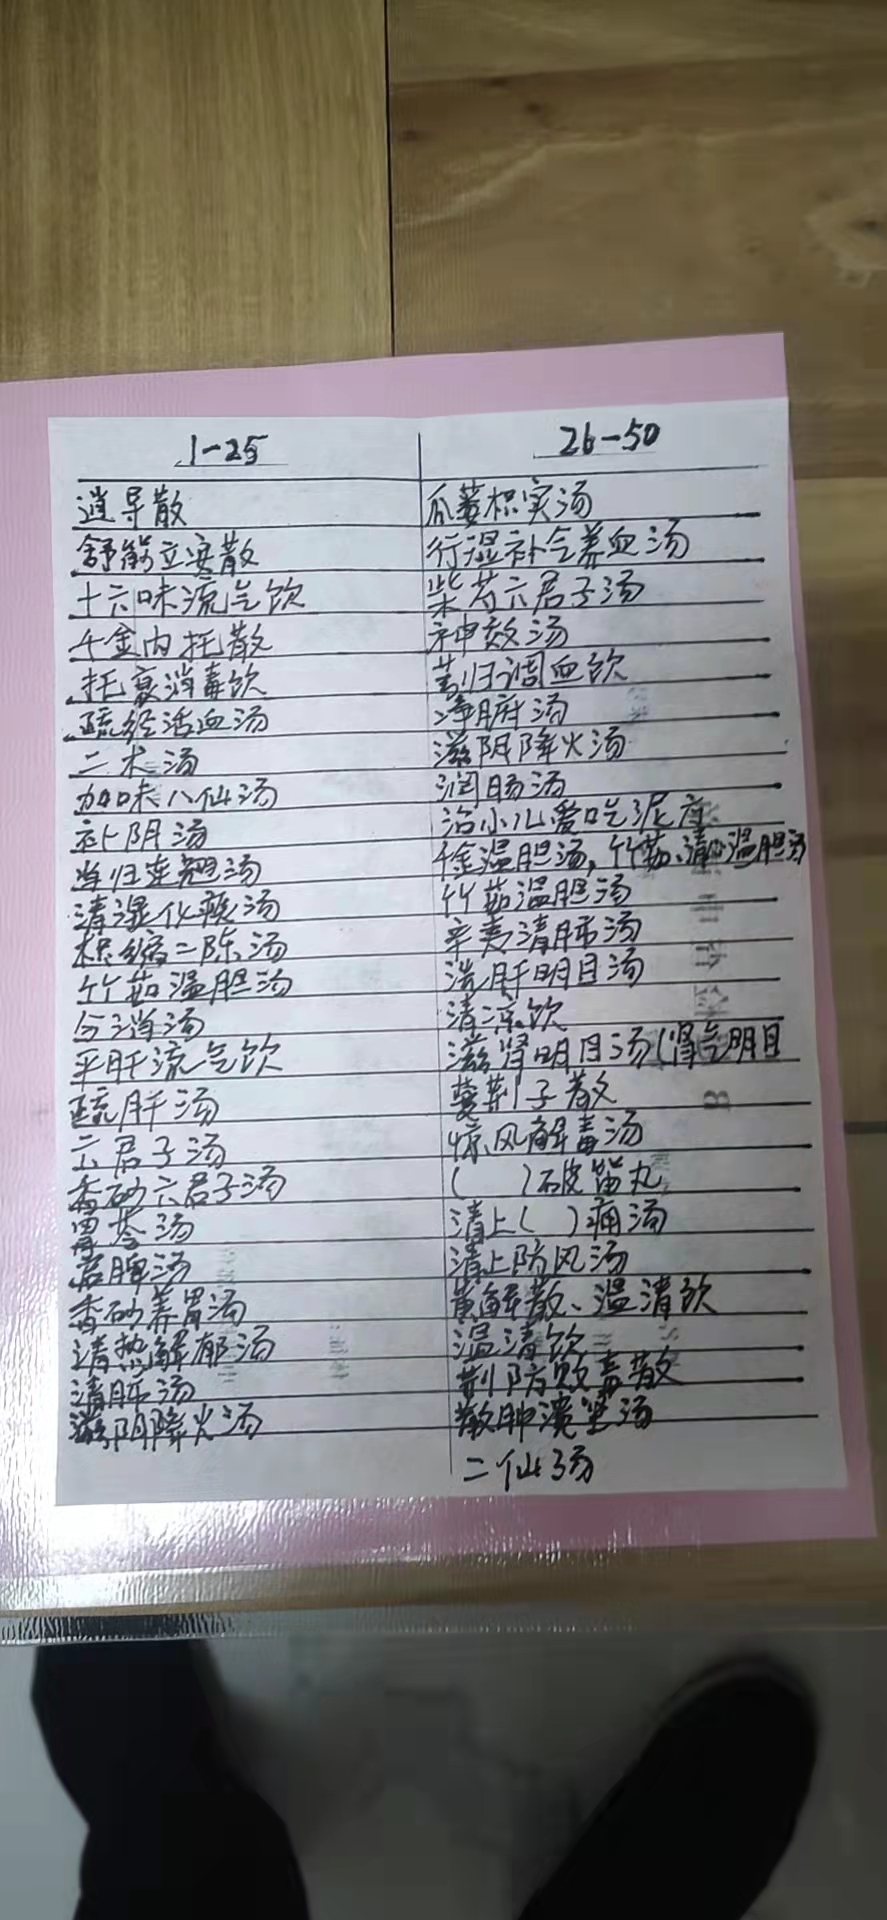 1-25
逍导散
舒筋立安散
十六味流气饮
千金内托散
托裏消毒饮
疏经活血汤
二术汤
加味八仙汤
补阴汤
当归连翘汤
清湿化痰汤
枳缩二陈汤
竹茹温胆汤
分消汤
平肝流气饮
疏肝汤
六君子汤
香砂六君子汤
胃苓汤
启脾汤
香砂养胃汤
清热解郁汤
清肺汤
滋阴降火汤
26-50
瓜蒌枳实汤
行湿补气养血汤
柴芍六君子汤
神效汤
芎归调血饮
净腑汤
滋阴降火汤
润肠汤
治小儿爱吃泥方
千金温胆汤,竹茹、清心温胆汤
竹茹温胆汤
辛夷清肺汤
洗肝明目汤
清凉饮
滋肾明目汤(肾气明目
蔓荆子散
惊风解毒汤
( )破笛丸
清上( )痛汤
清上防风汤
黄解散、温清饮
温清饮
荆防败毒散
散肿溃坚汤
二仙汤